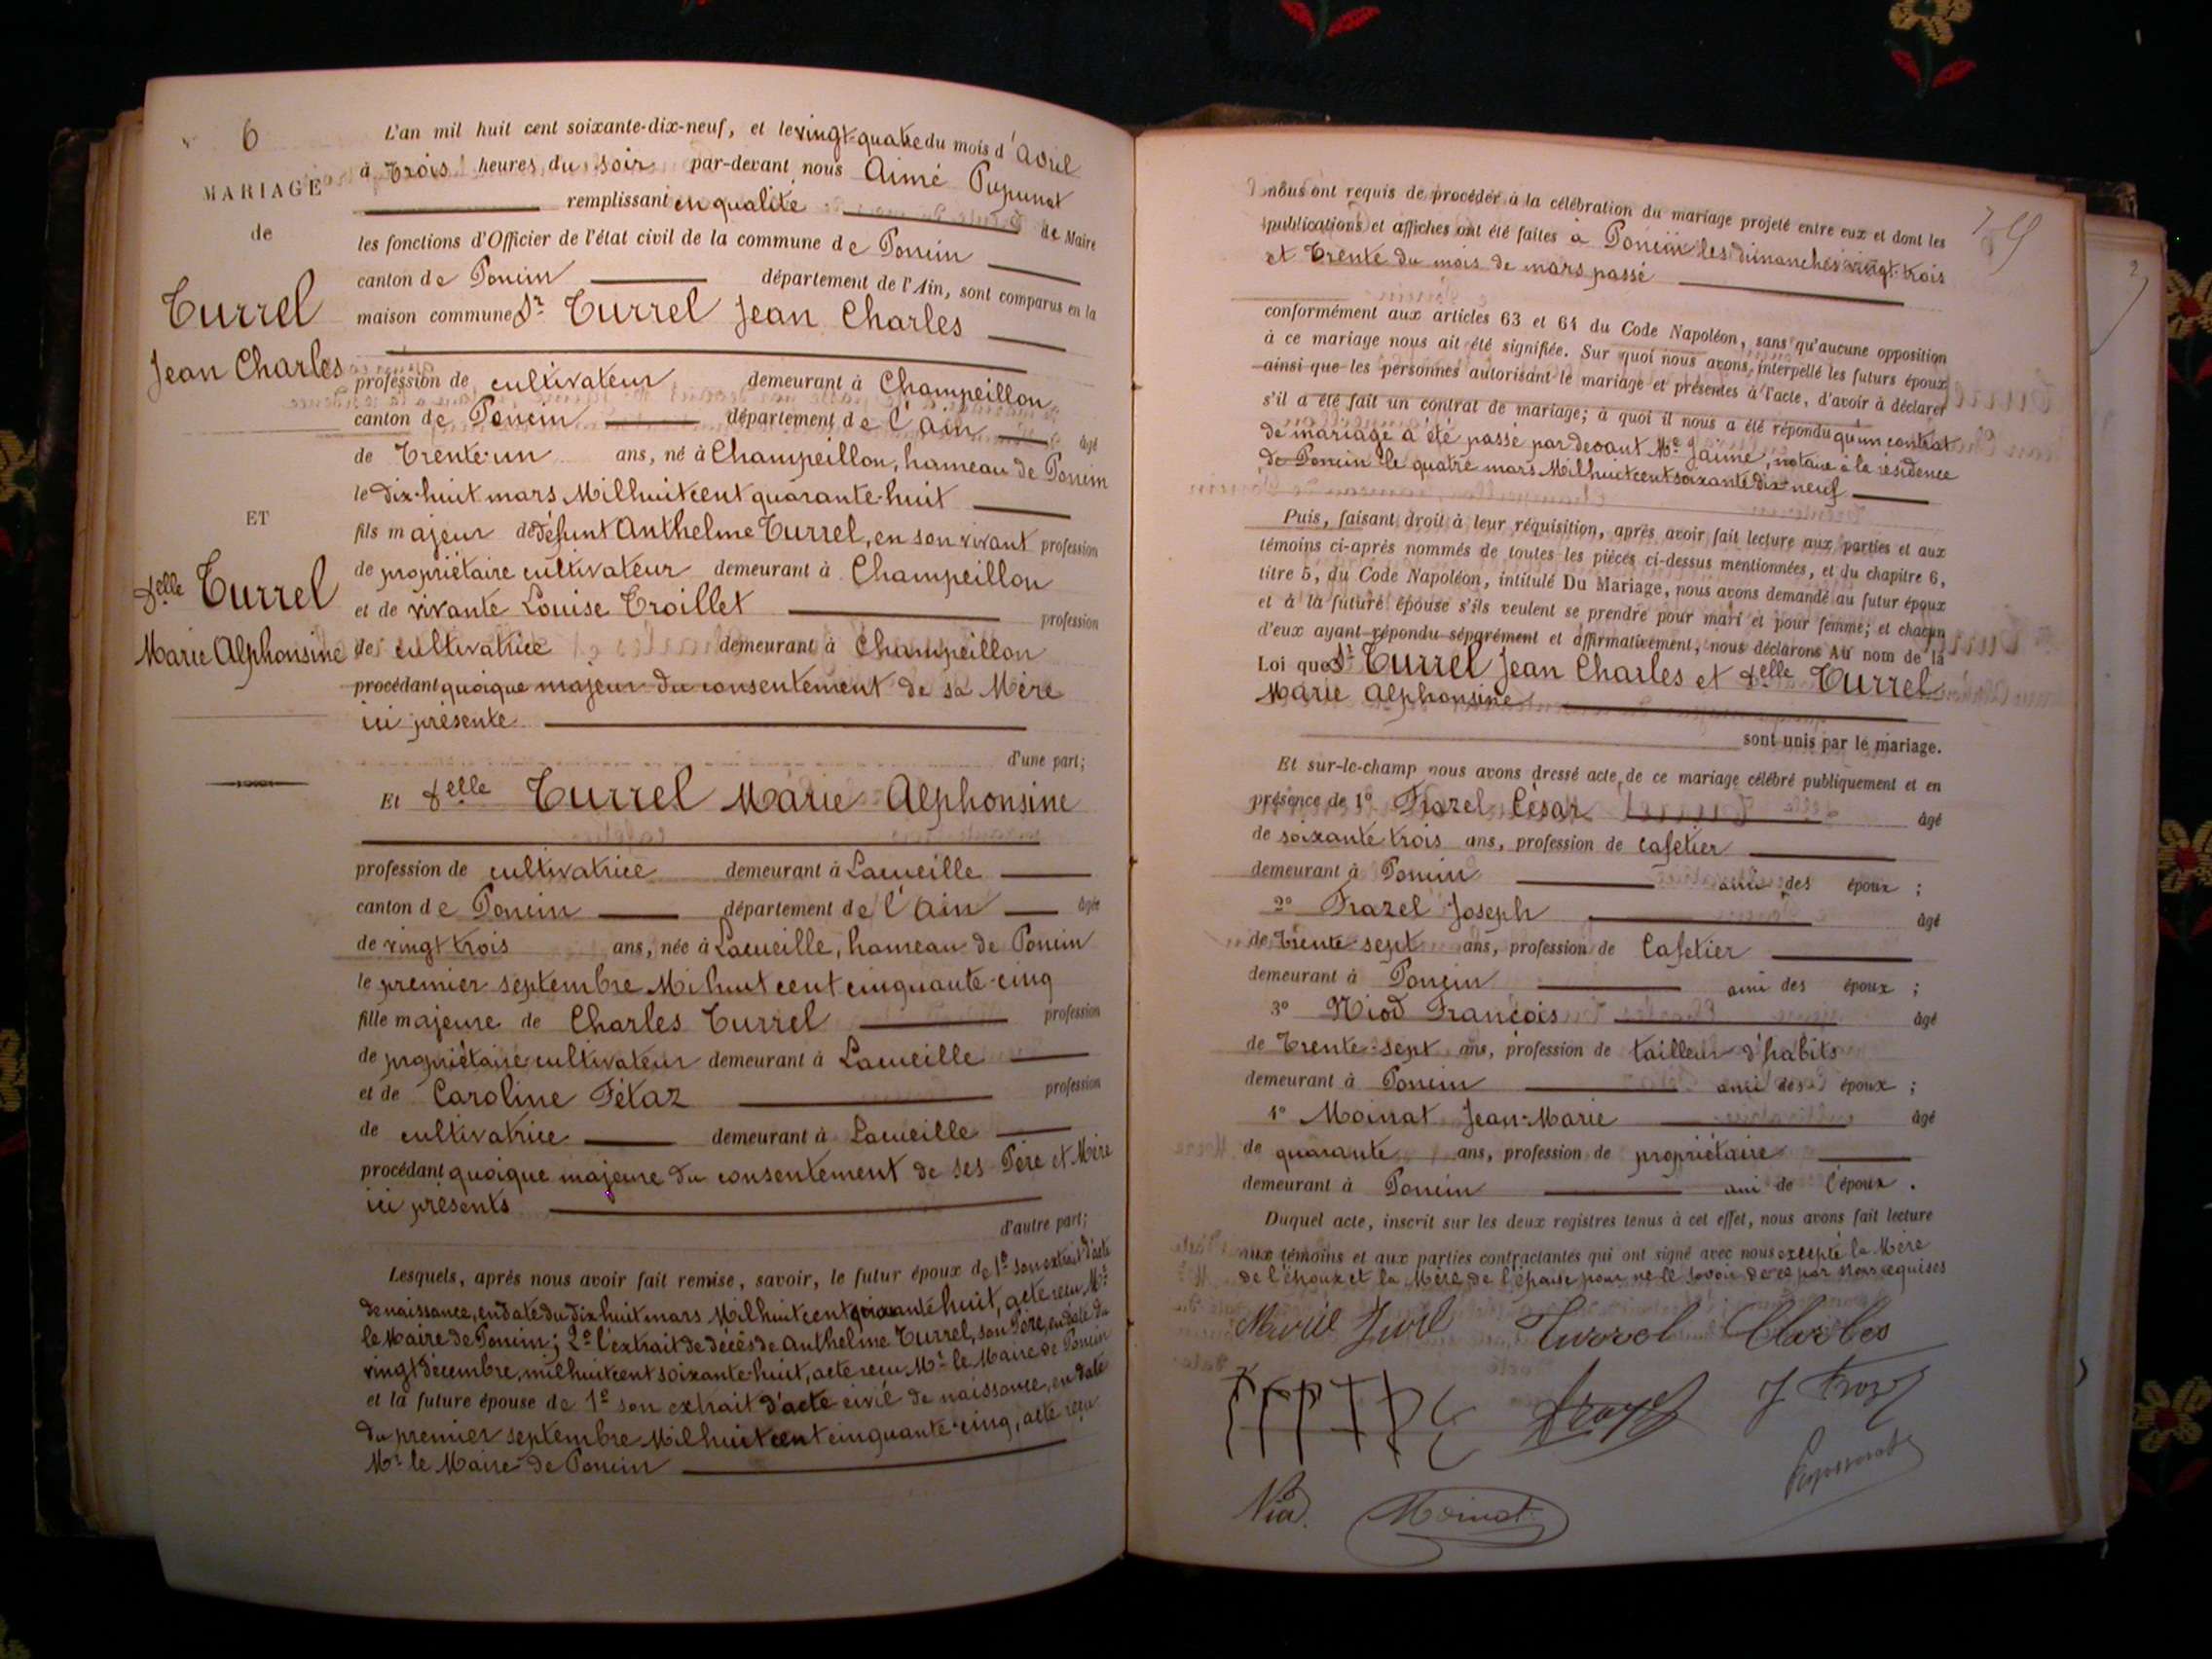 6
MARIAGE
de
Turrel
Jean Charles
ET
Delle Turrel
Marie Alphonsine
L'an mil huit cent soixante-dix-neuf, et le vingt-quatre du mois d'Avril
à Trois heures du soir par-devant nous Aimé
remplissant en qualité de Maire
les fonctions d'Officier de l'état civil de la commune de Poncin
canton de Poncin département de l'Ain, sont comparus en la
maison commune Sr Turrel Jean Charles
profession de cultivateur demeurant à Champeillon
canton de Poncin département de l'Ain âgé
de Trente-un ans, né à Champeillon, hameau de Poncin
le dix-huit mars Mil huit cent quarante-huit
fils majeur de défunt Anthelme Turrel, en son vivant profession
de propriétaire cultivateur demeurant à Champeillon
et de vivante Louise Troillet profession
de cultivatrice demeurant à Champeillon
procédant quoique majeur du consentement de sa Mère
ici présente
d'une part;
Et Delle Turrel Marie Alphonsine
profession de cultivatrice demeurant à Lacueille
canton de Poncin département de l'Ain âgée
de vingt trois ans, née à Lacueille, hameau de Poncin
le premier septembre Mil huit cent cinquante-cinq
fille majeure de Charles Turrel profession
de propriétaire cultivateur demeurant à Lacueille
et de Caroline Fétaz profession
de cultivatrice demeurant à Lacueille
procédant quoique majeure du consentement de ses Père et Mère
ici présents
d'autre part;
Lesquels, après nous avoir fait remise, savoir, le futur époux de 1° son extrait d'acte
de naissance, en date du dix huit mars Mil huit cent quarante huit, acte reçu Mr
le Maire de Poncin; 2° l'extrait de décès de Anthelme Turrel, son Père, en date du
vingt décembre, mil huit cent soixante-huit, acte reçu Mr le Maire de Poncin
et la future épouse de 1° son extrait d'acte civil de naissance, en date
du premier septembre Mil huit cent cinquante-cinq, acte reçu
Mr le Maire de Poncin
nous ont requis de procéder à la célébration du mariage projeté entre eux et dont les
publications et affiches ont été faites à Poncin les dimanches vingt-trois
et Trente du mois de mars passé
conformément aux articles 63 et 64 du Code Napoléon, sans qu'aucune opposition
à ce mariage nous ait été signifiée. Sur quoi nous avons interpellé les futurs époux
ainsi que les personnes autorisant le mariage et présentes à l'acte, d'avoir à déclarer
s'il a été fait un contrat de mariage; à quoi il nous a été répondu qu'un contrat
de mariage a été passé par devant Me Jaime, notaire à la résidence
de Poncin le quatre mars Mil huit cent soixante dix-neuf
Puis, faisant droit à leur réquisition, après avoir fait lecture aux parties et aux
témoins ci-après nommés de toutes les pièces ci-dessus mentionnées, et du chapitre 6,
titre 5, du Code Napoléon, intitulé Du Mariage, nous avons demandé au futur époux
et à la future épouse s'ils veulent se prendre pour mari et pour femme; et chacun
d'eux ayant répondu séparément et affirmativement, nous déclarons Au nom de la
Loi que Sr Turrel Jean Charles et Delle Turrel
Marie Alphonsine
sont unis par le mariage.
Et sur-le-champ nous avons dressé acte de ce mariage célébré publiquement et en
présence de 1° Frazel César âgé
de soixante trois ans, profession de cafetier
demeurant à Poncin ami des époux;
2° Frazel Joseph âgé
de Trente-sept ans, profession de Cafetier
demeurant à Poncin ami des époux;
3° Niod François âgé
de Trente-sept ans, profession de tailleur d'habits
demeurant à Poncin ami des époux;
4° Moinat Jean-Marie âgé
de quarante ans, profession de propriétaire
demeurant à Poncin ami de l'époux.
Duquel acte, inscrit sur les deux registres tenus à cet effet, nous avons fait lecture
aux témoins et aux parties contractantes qui ont signé avec nous excepté la Mère
de l'époux et la Mère de l'épouse pour ne le savoir de ce par nous requises
Turrel Charles
Niod
Moinat